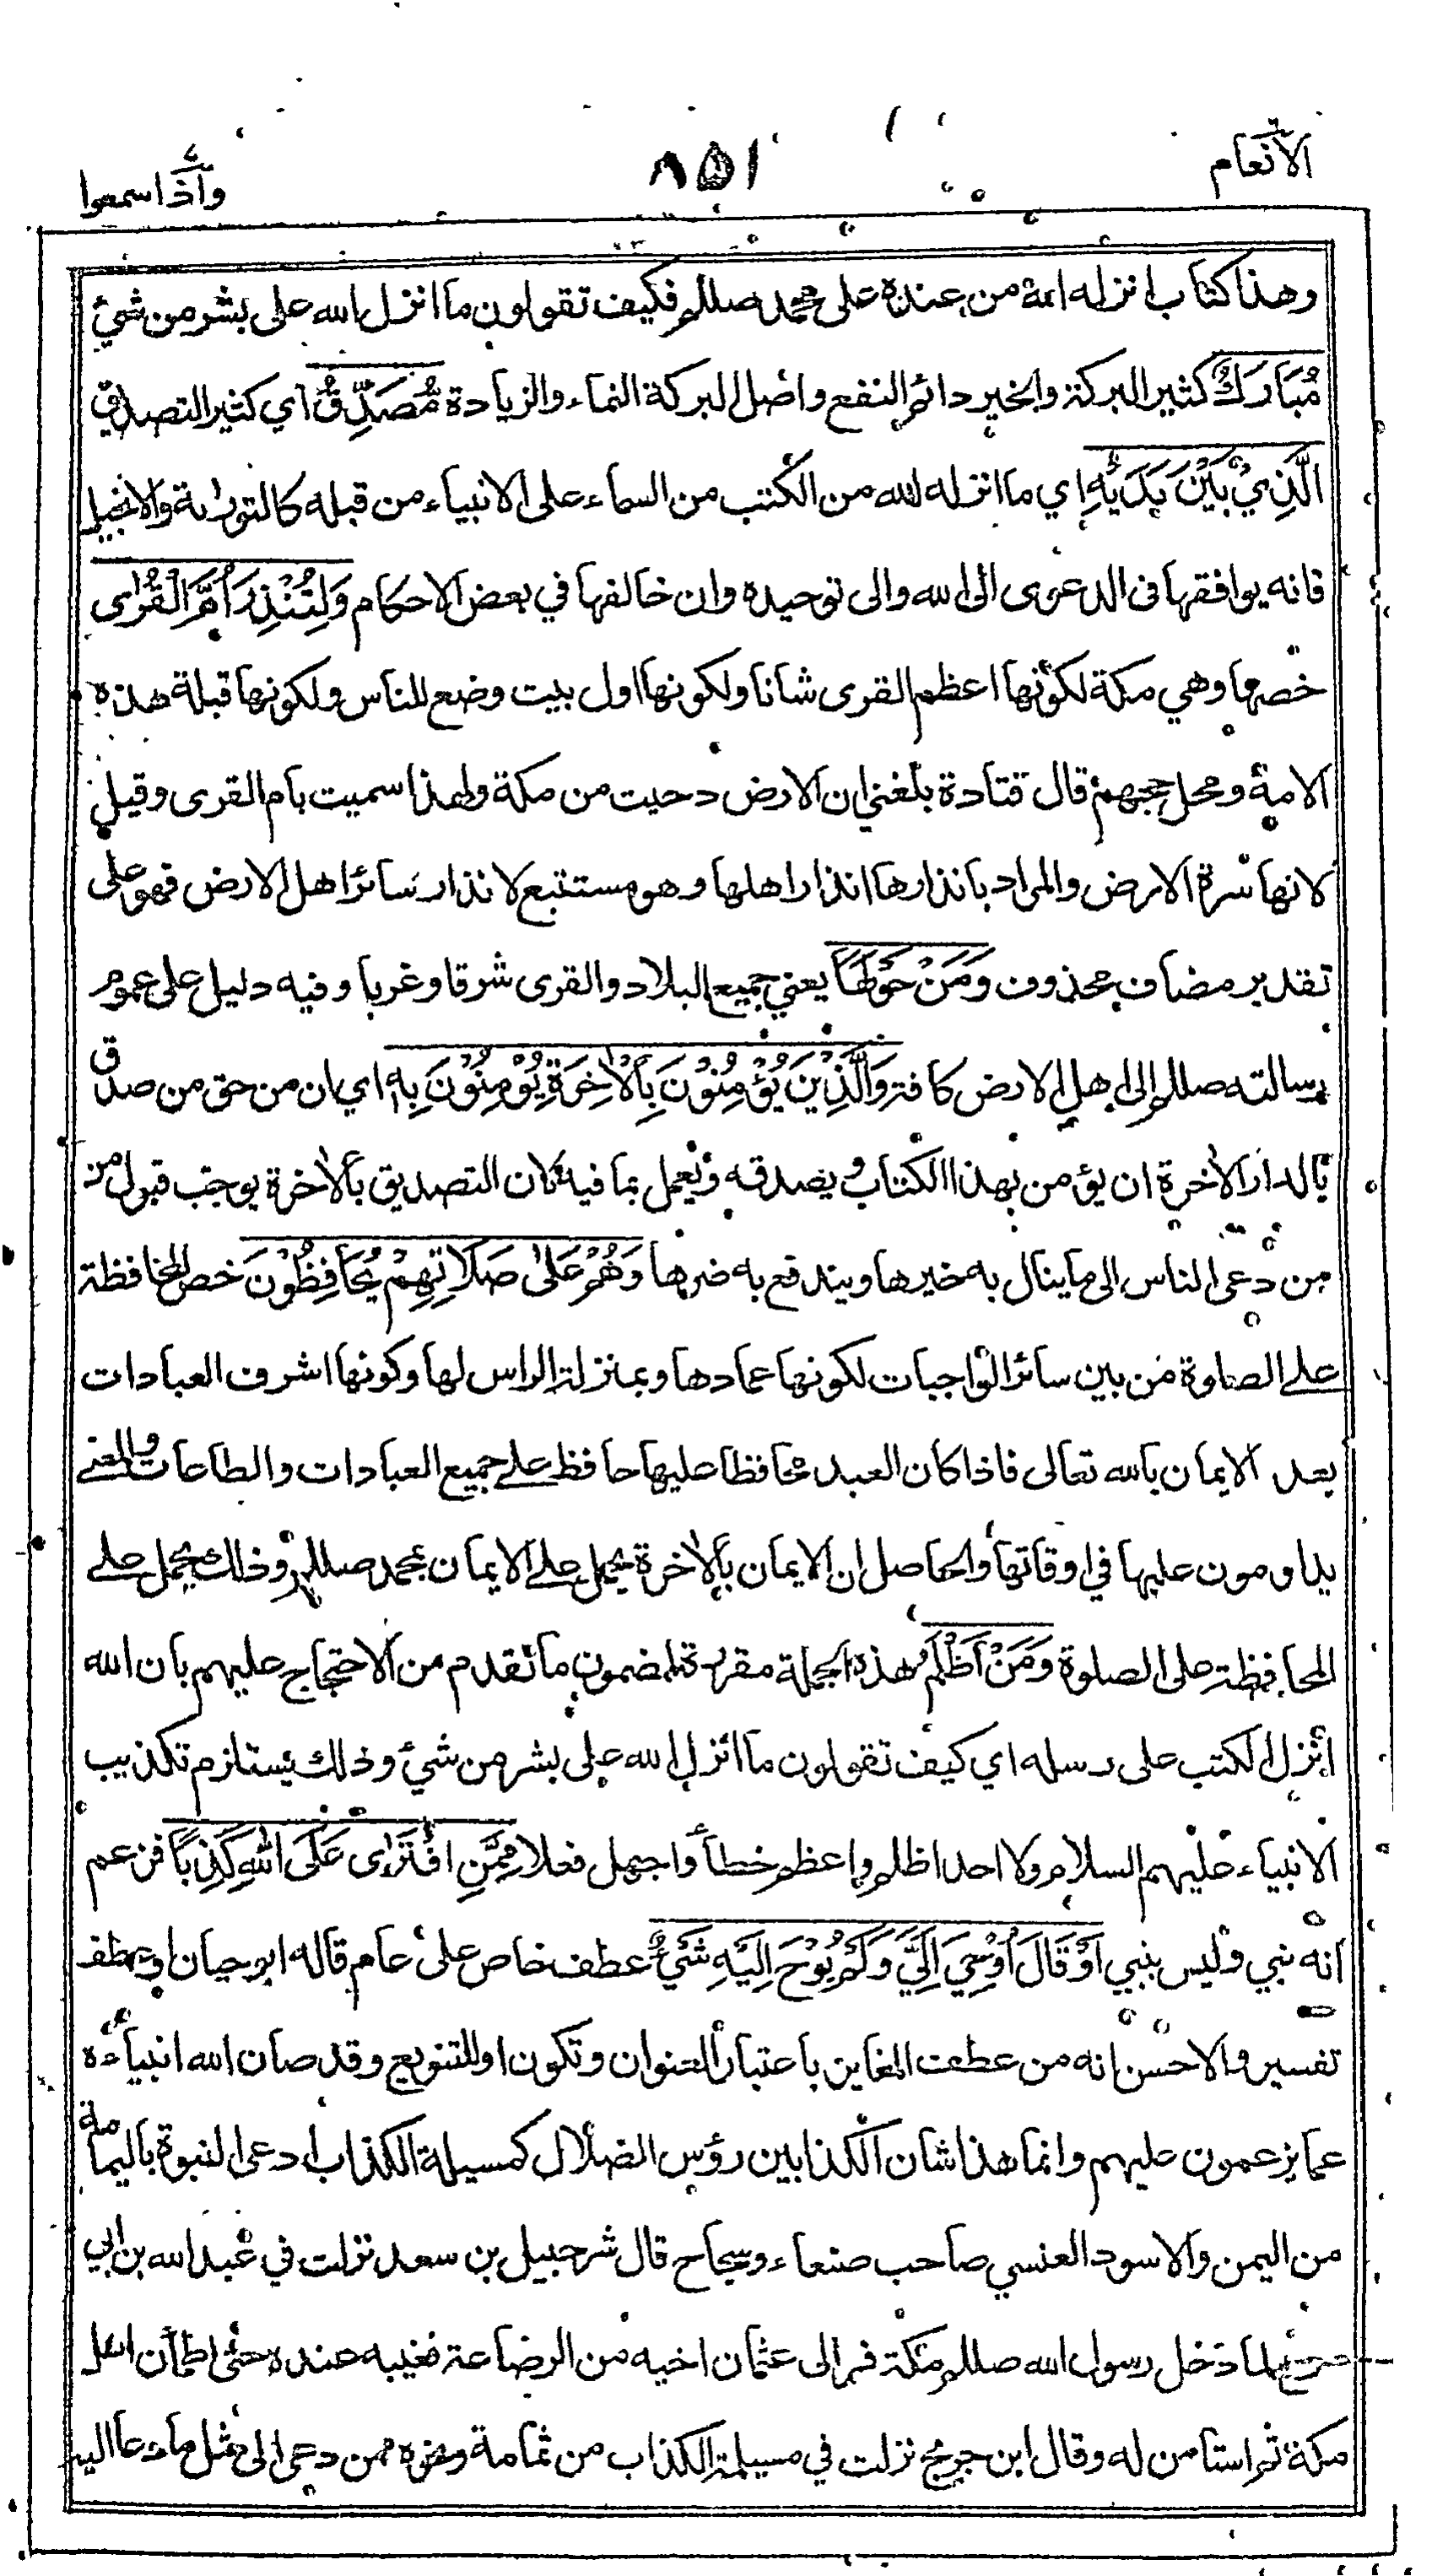 الانعام
٨٥١
واذا سمعوا
وهذا كتاب انزله الله من عنده على محمد صللم فكيف تقولون ما انزل الله على بشر من شيئ
مُبَارَكٌ كثير البركة والخير دائم النفع واصل البركة النماء والزيادة مُصَدِّقُ اي كثير التصديق
الَّذِيْ بَيْنَ يَدَيْهِ اي ما انزله الله من الكتب من السماء على الانبياء من قبله كالتوراىة والانجيل
فانه يوافقها في الدعوى الى الله والى توحيده وان خالفها في بعض الاحكام وَلِتُنْذِرَ اُمَّ الْقُرٰى
خصها وهي مكة لكونها اعظم القرى شانا ولكونها اول بيت وضع للناس ولكونها قبلة هذه
الامة ومحل حجهم قال قتادة بلغني ان الارض دحيت من مكة ولهذا سميت بام القرى وقيل
لانها سرة الارض والمراد بانذارها انذار اهلها وهو مستتبع لانذار سائر اهل الارض فهو على
تقدير مضاف محذوف وَمَنْ حَوْلَهَا يعني جميع البلاد والقرى شرقا وغربا وفيه دليل على عموم
رسالته صللم الى اهل الارض كافة وَالَّذِيْنَ يُؤْمِنُوْنَ بِالْاٰخِرَةِ يُؤْمِنُوْنَ بِهٖ اي ان من حق من صدق
بالدار الاخرة ان يؤمن بهذا الكتاب ويصدقه ويعمل بما فيه لان التصديق بالاخرة يوجب قبول من
من دعى الناس الى ما ينال به خيرها ويندفع به ضرها وَهُمْ عَلٰى صَلَاتِهِمْ يُحَافِظُوْنَ خص المحافظة
على الصلوة من بين سائر الواجبات لكونها عمادها وبمنزلة الراس لها وكونها اشرف العبادات
بعد الايمان بالله تعالى فاذا كان العبد محافظا عليها حافظ على جميع العبادات والطاعات والمعنى
يداومون عليها في اوقاتها والحاصل ان الايمان بالاخرة يحمل على الايمان بمحمد صللم وذلك يحمل على
المحافظة على الصلوة وَمَنْ اَظْلَمُ هذه الجملة مقررة لمضمون ما تقدم من الاحتجاج عليهم بان الله
انزل الكتب على رسله اي كيف تقولون ما انزل الله على بشر من شيئ وذلك يستلزم تكذيب
الانبياء عليهم السلام ولا احد اظلم واعظم خطأ واجهل فعلا مِمَّنِ افْتَرٰى عَلَى اللهِ كَذِبًا فزعم
انه نبي وليس بنبي اَوْ قَالَ اُوْحِيَ اِلَيَّ وَلَمْ يُوْحَ اِلَيْهِ شَيْءٌ عطف خاص على عام قاله ابو حيان او عطف
تفسير والاحسن انه من عطف المغاير باعتبار العنوان وتكون او للتنويع وقد صان الله انبياءه
عما يزعمون عليهم وانما هذا شان الكذابين رؤس الضلال كمسيلة الكذاب ادعى النبوة باليمامة
من اليمن والاسود العنسي صاحب صنعاء وسجاح قال شرحبيل بن سعد نزلت في عبد الله بن ابي
سرح لما دخل رسول الله صللم مكة فر الى عثمان اخيه من الرضاعة فغيبه عنده حتى اطمأن اهل
مكة ثم استامن له وقال ابن جريج نزلت في مسيلمة الكذاب من ثمامة ونحوه ممن دعى الى مثل ما دعا اليه